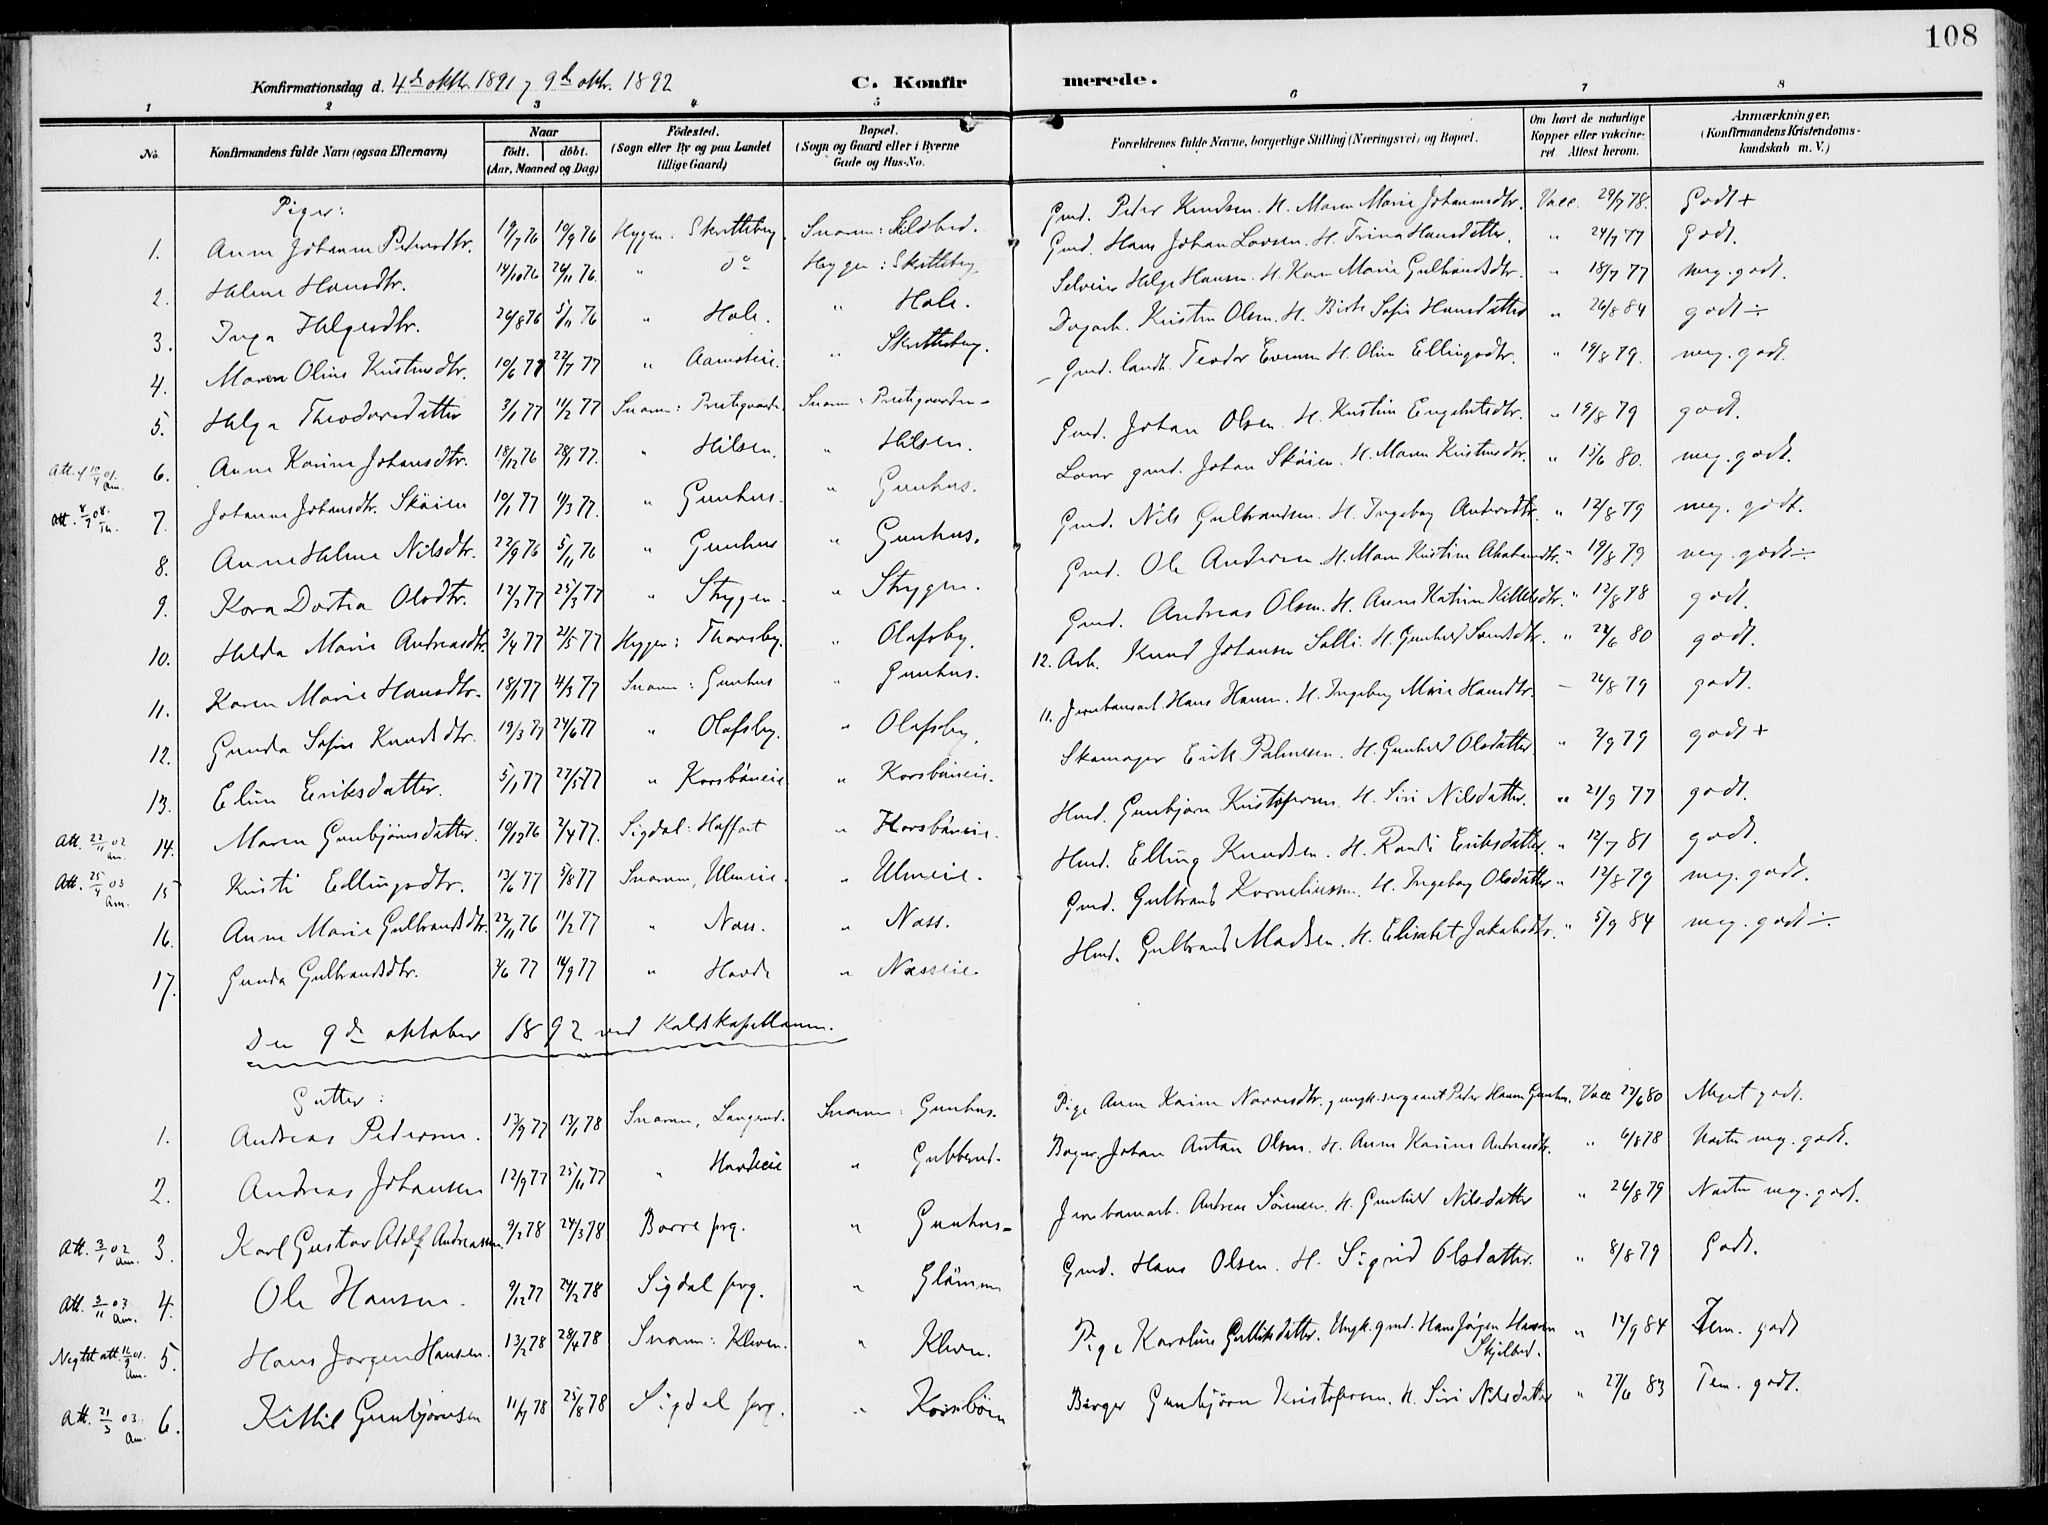 108
Konfirmationsdag d. 4de oktbr. 1891, 9de oktbr. 1892 C. Konfirmerede.
1 2 3 4 5 6 7 8
No. Konfirmandens fulde Navn (ogsaa Efternavn) Naar födt. döbt. (Aar, Maaned og Dag) Födested. (Sogn eller By og paa Landet tillige Gaard) Bopæl. (Sogn og Gaard eller i Byerne Gade og Hus-No. Forældrenes fulde Navne, borgerlige Stilling (Næringsvei) og Bopæl. Om havt de naturlige Kopper eller vakcineret. Attest herom. Anmærkninger, (Konfirmandens Kristendomskundskab m. V.)
Piger:
1. Anne Johanne Pedersdtr. 19/7 76 10/9 76 Hyggen: Skretteberg Snarum: Gmd. Peder Knudsen. H. Maren Marie Johannesdtr. Vacc. 29/7 78. Godt +
2. Helene Hansdtr. 14/10 76 26/11 76. " do Hyggen: Skretteberg Gmd. Hans Johan Larsen. H. Trina Hansdatter. " 24/7 77 Godt.
3. Inga Helgesdtr. 26/8 76 5/11 76 " Hole. " Hole. Selveier Helge Hansen. H. Karen Marie Gulbrandsdtr. " 18/7 77 meg. godt.
4. Maren Oline Kristinesdtr. 10/6 77 22/7 77 " " Skretteberg. Dagarb. Kristen Olsen. H. Sofie Hansdatter " 26/8 84 godt ÷
5. Helga Theodorsdatter 3/1 77 11/2 77 Snarum: Prestegaarden Snarum: Prestegaarden Gmd. landh. Teodor Evensen H. Oline Ellingsdtr. " 19/8 79. meg. godt.
Att. 10/4 01. Am. 6. Anne Karine Johansdtr. 18/12 76 28/1 77. " Hilsen. " Hilsen. Gmd. Johan Olsen. H. Kristine Engebretsdtr. " 19/8 79 godt.
Att. 8/9 08. 7. Johanne Johansdtr. Skåien 10/1 77 11/3 77. " Gunhus. " Gunhus. gmd. Johan Skåien. H. Maren Kristinesdtr. " 15/6 80. meg. godt.
8. Anne Helene Nilsdtr. 22/9 76 5/11 76 " Gunhus " Gunhus. Gmd. Nils Gulbrandsen. H. Ingeborg Andersdtr. " 12/8 79 meg. godt.
9. Kora Dortea Olsdtr. 12/2 77 25/3 77 " Strygen. " Strygen. Gmd. Ole Andersen. H. Maren Kristine " 19/8 79 meg. godt ÷
10. Helda Marie Andreasdtr. 3/4 77 21/5 77 Hyggen: Thorsby. " Olafsby. Gmd. Andreas Olsen. H. Anne Katrine Kittelsdtr. " 12/8 78 godt.
11. Karen Marie Hansdtr. 18/1 77 4/3 77 Snarum: Gunhus " Gunhus. 12. Arb. Knud Johansen H. Gunhild " 22/6 80 godt.
12. Gunda Sofie Knudsdtr. 19/3 77 24/6 77 " Olafsby. " Olafsby. 11. Jernbanearb. Hans Hansen. H. Ingeborg Marie Hansdtr. – 26/8 79 godt.
13. Eline Eriksdatter. 5/1 77 27/5 77 " Korsbøneie. " Korsbøneie. Skomager Erik Palmesen. H. Gunhild Olsdatter " 2/9 79 godt +
Att. 22/11 02 Am. 14. Maren Gunbjørnsdatter. 10/12 76 2/4 77. Sigdal: Haffart " Korsbøneie. Hmd. Gunbjørn Kristofersen. H. Siri Nilsdatter. " 21/9 77 godt.
Att. 25/4 03 Am. 15 Kristi Ellingsdtr. 13/6 77 5/8 77 Snarum, Ulmeie. " Ulmeie. Hmd. Elling Knudsen. H. Randi Eriksdatter. " 12/7 81 godt.
16. Anne Marie Gulbrandsdtr. 22/11 76 11/2 77 " Nass. " Nass. Gmd. Gulbrand Korneliussen. H. Ingeborg Olsdatter " 12/8 79 meg. godt.
17. Gunda Gulbrandsdtr. 2/6 77 16/9 77 " Havde " Nasseie. Hmd. Gulbrand Madsen. H. Elisabet Jakobsdtr. " 5/9 84 meg. godt ÷.
Den 9de oktober 1892 ved Kaldskapellanen.
Gutter:
1. Andreas Pedersen. 13/9 77 13/1 78 Snarum, Langerud. Snarum: Gunhus. Pige Anne Karine Narvesdtr. ungk. sergeant Peder Hansen Gunhus. Vacc 22/6 80 Meget godt.
2. Andreas Johansen 12/9 77 25/11 77 " Havdeeie " Gubberud. Johan Anton Olsen. H. Anne Karine Andreasdtr. " 6/8 78 Næsten meg. godt.
Att. 3/1 02 Am. 3. Karl Gustav Adolf Andreassen. 9/2 78 24/3 78 Borre prg. " Gunhus Jernbanearb. Andreas Sørensen. H. Gunhild Nilsdatter " 26/8 79 Næsten meg. godt.
Att. 3/11 03 Am. 4. Ole Hansen. 9/12 77 24/2 78 Sigdal prg. " Glåmen Gmd. Hans Olsen. H. Sigrid Olsdatter. " 8/8 79 Godt.
Negtet att. 16/9 01. Am. 5. Hans Jørgen Hansen. 13/2 78 28/4 78 Snarum: Kleven. " Kleven. Pige Karoline Gulliksdatter. Ungk. gmd. Hans Jørgen Hansen Skjelbred. " 12/9 84 Tem. godt
Att. 21/3 03. Am. 6. Kittil Gunbjørnsen 11/7 78 25/8 78 Sigdal prg. " Korsbøen Børger Gunbjørn Kristofersen. H. Siri Nilsdatter " 27/6 83 Tem. godt.